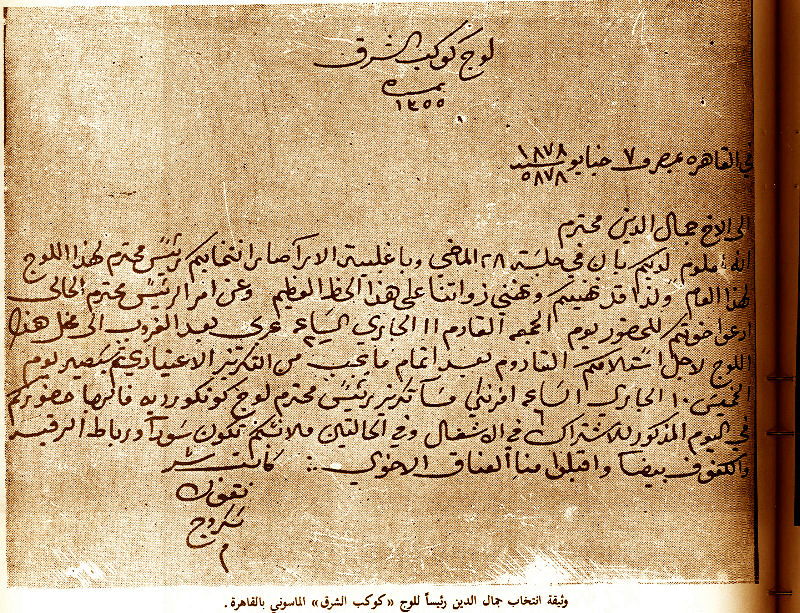 لوج كوكب الشرق
نمرة
١٣٥٥
في القاهره بمصر في ٧ جنايو سنة ١٨٧٨
٥٨٧٨
الى الاخ جمال الدين محترم
انه معلوم لديكم بان في جلسة ٢٨ الماضي وباغلبية الارآ صار انتخابكم رئيس محترم لهذا اللوج
لهذا العام ولذا قد نهنيكم ونهني ذواتنا على هذا الحظ العظيم وعن امر الرئيس محترم الحالى
ادعو اخوتكم للحضور يوم الجمعه القادم ١١ الجاري الساعه عربي بعد الغروب الى محل هذا
اللوج لاجل استلامكم القادوم بعد اتمام ما يجب من التكريز الاعتيادي ثم سيصير يوم
الخميس ١٠ الجاري الساعه ٦ افرنكي مسآ تكريز رئيس محترم لوج كونكورديه فالرجا حضوركم
في اليوم المذكور للاشتراك في الاشغال وفي الحالتين ملابسكم تكون سودآ ورباط الرقبه
والكفوف بيضآ واقبلوا منا العناق الاخوي
كاتب سر
نقولا
سكروج
وثيقة انتخاب جمال الدين رئيساً للوج «كوكب الشرق» الماسوني بالقاهرة .